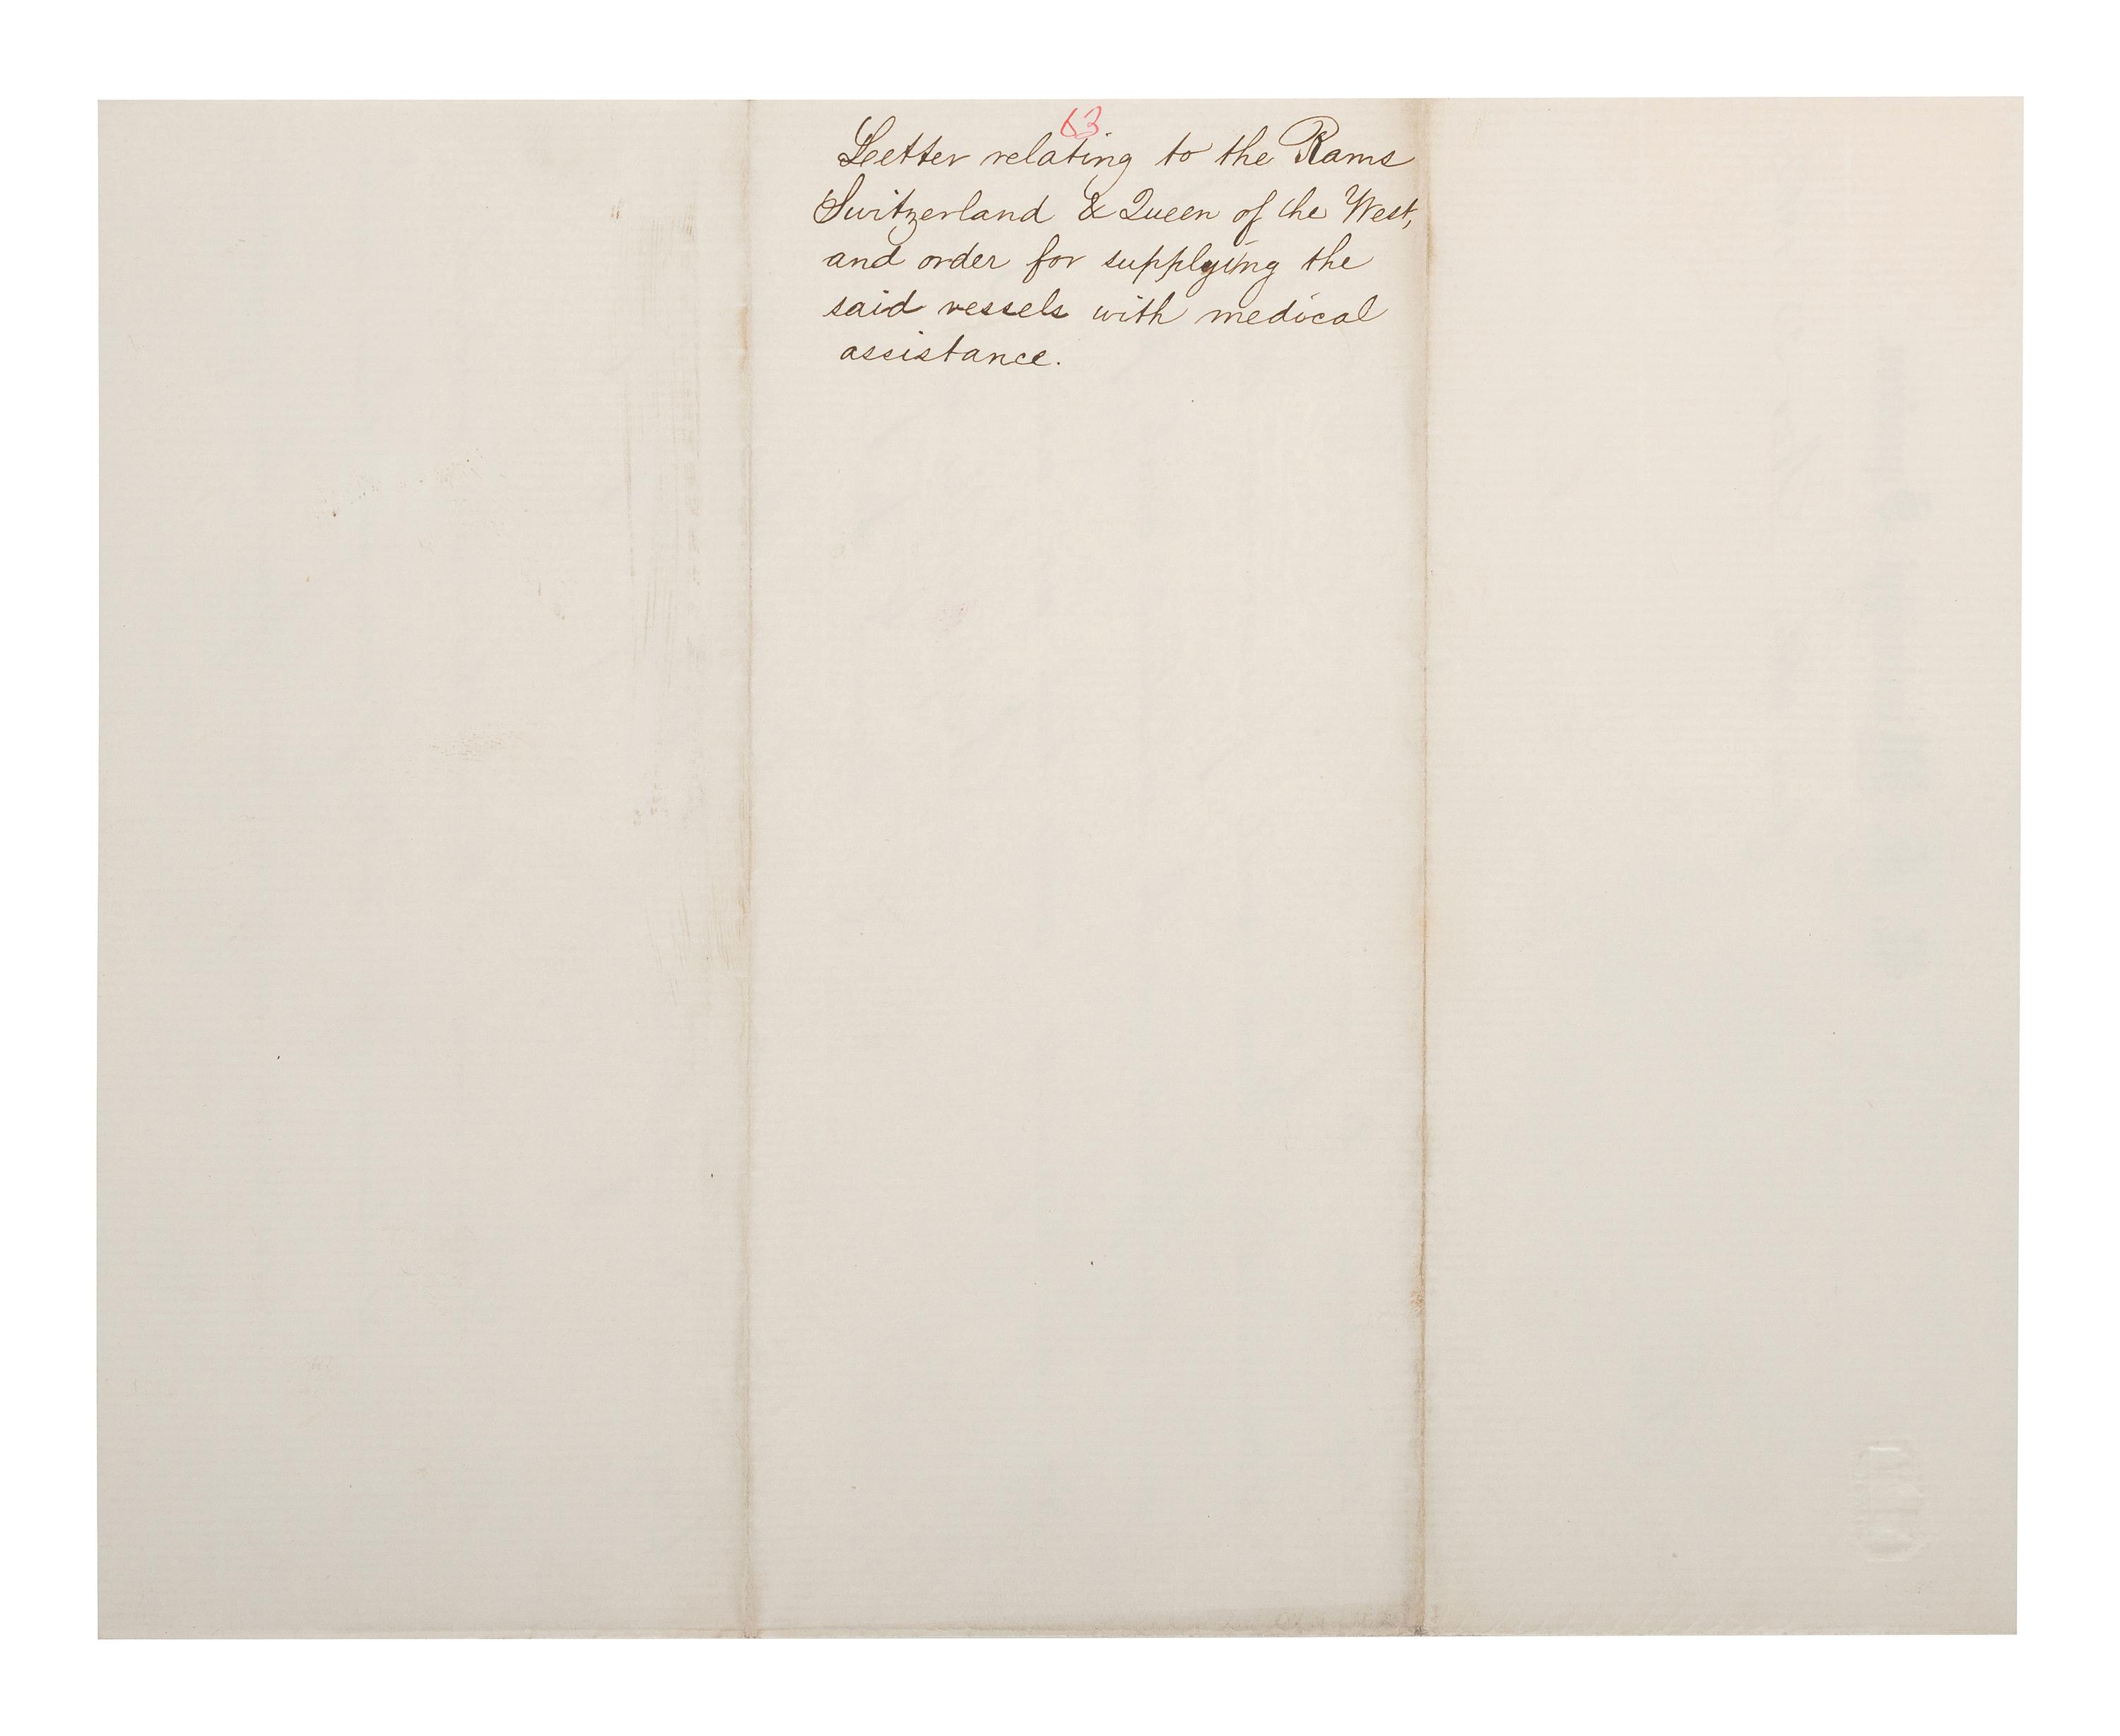 63
Letter relating to the Rams
Switzerland & Queen of the West,
and order for supplying the
said vessels with medical
assistance.